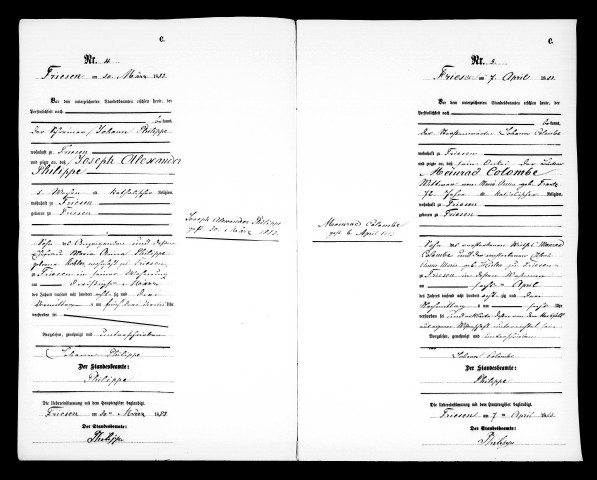 C.
Nr. 4.
Friesen am 30. März 1883.
Vor dem unterzeichneten Standesbeamten erschien heute, der
Persönlichkeit nach
kannt,
der Johann Philippe
wohnhaft zu Friesen
und zeigte an, daß Joseph Alexander
Philippe
5 Wochen a katholischer Religion,
wohnhaft zu Friesen
geboren zu Friesen
Sohn des Anzeigenden und dessen
Ehefrau Maria Anna Philippe
geborne wohnhaft zu Friesen,
zu Friesen in seiner Wohnung
am dreißigsten März
des Jahres tausend acht hundert achtzig und drei
Vormittags um Uhr
verstorben sei
Vorgelesen, genehmigt und unterschrieben
Johann Philippe
Der Standesbeamte:
Philippe
Die Uebereinstimmung mit dem Hauptregister beglaubigt.
Friesen am 30ten März 1883
Der Standesbeamte:
Philippe
Joseph Alexander Philippe
gest. 30. März 1883.
C.
Nr. 5.
Friesen am 7. April 1883.
Vor dem unterzeichneten Standesbeamten erschien heute, der
Persönlichkeit nach
kannt,
der Johann Colombe
wohnhaft zu Friesen
und zeigte an, daß sein
Meinrad Colombe
Wittwer von Maria Anna geb. Frantz
72 Jahre a katholischer Religion,
wohnhaft zu Friesen
geboren zu Friesen
Sohn des verstorbenen Meinrad
Colombe und der verstorbenen
Anna Maria geb. zu Friesen
zu Friesen in dessen Wohnung
am sechsten April
des Jahres tausend acht hundert achtzig und drei
Nachmittags um sechs Uhr
verstorben sei
Vorgelesen, genehmigt und unterschrieben
Johann Colombe
Der Standesbeamte:
Philippe
Die Uebereinstimmung mit dem Hauptregister beglaubigt.
Friesen am 7ten April 1883
Der Standesbeamte:
Philippe
Meinrad Colombe
gest. 6. April 1883